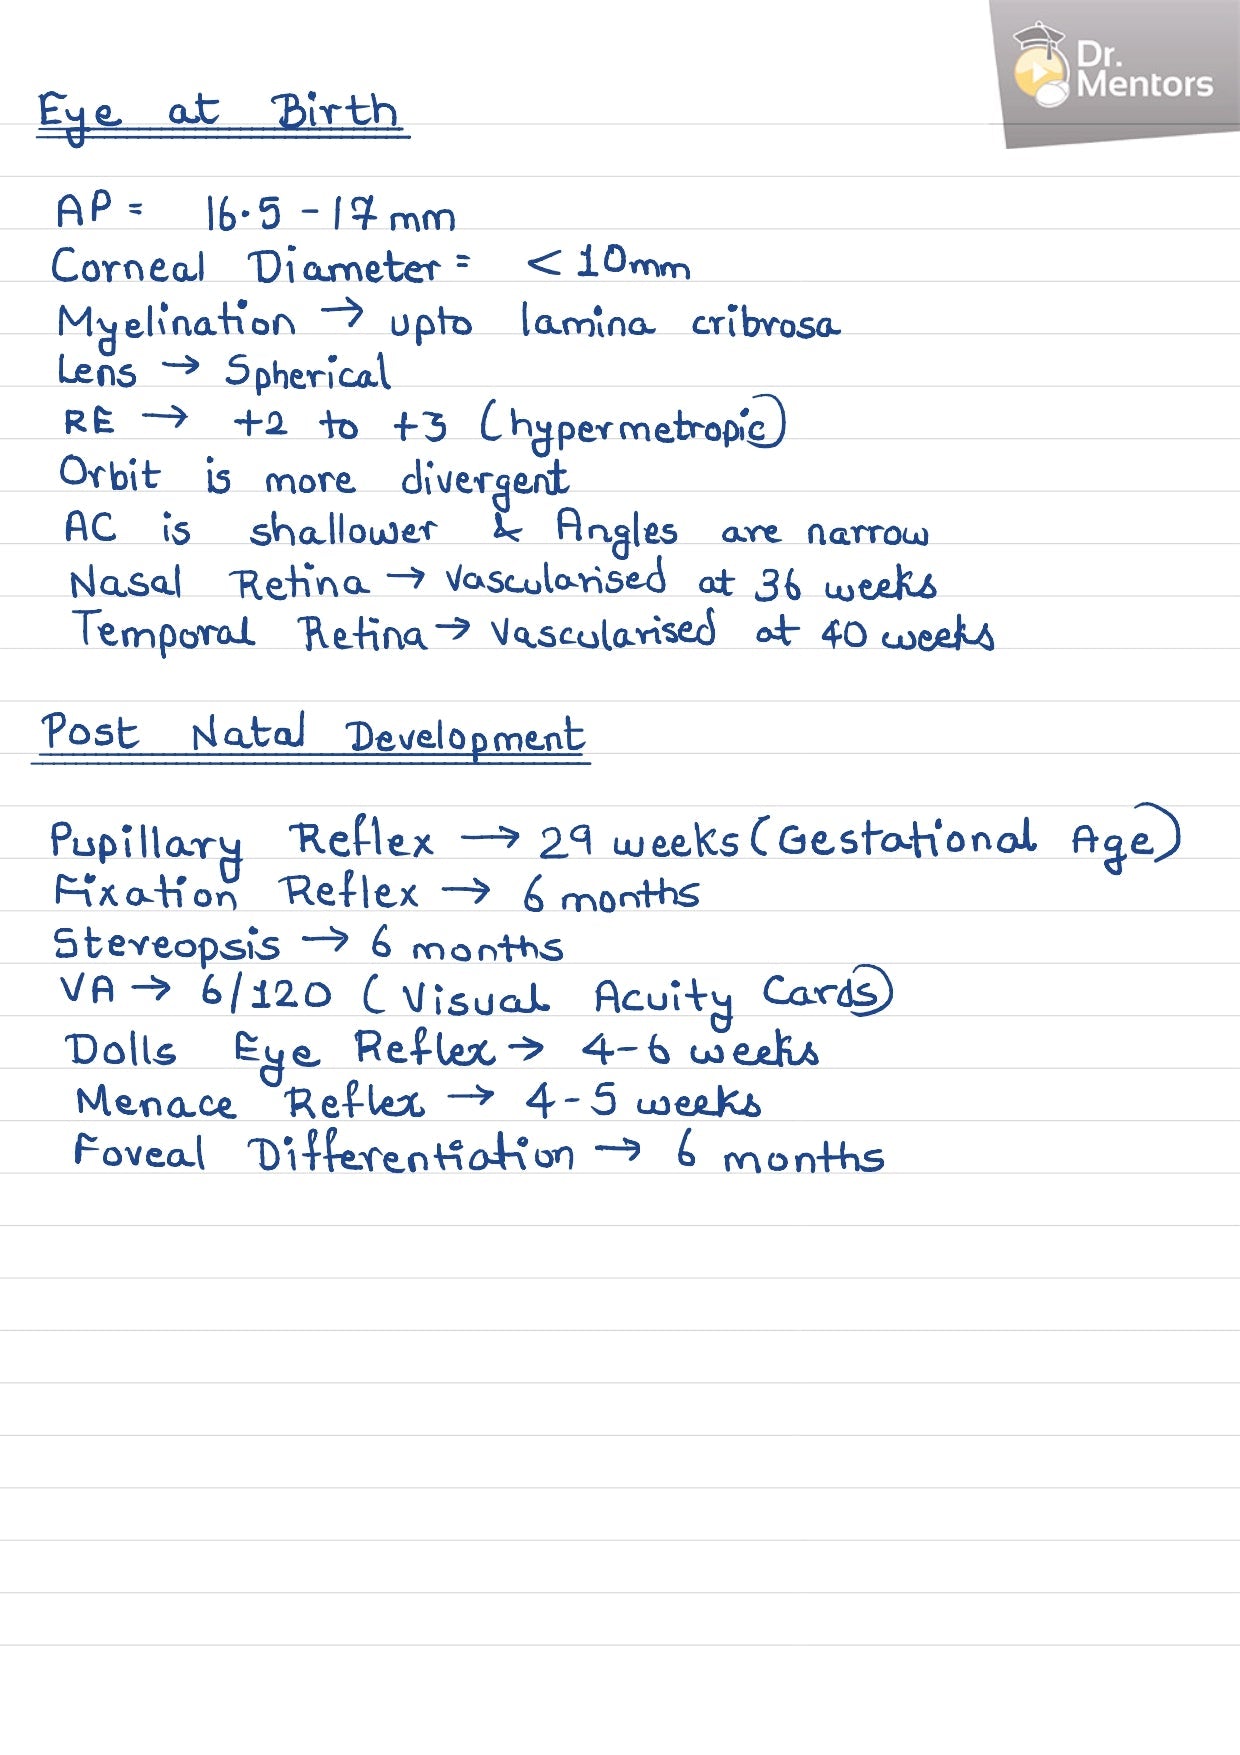 Dr.
Mentors
Eye at Birth
AP = 16.5 - 17 mm
Corneal Diameter = < 10mm
Myelination → upto lamina cribrosa
Lens → Spherical
RE → +2 to +3 (hypermetropic)
Orbit is more divergent
AC is shallower & Angles are narrow
Nasal Retina → Vascularised at 36 weeks
Temporal Retina → Vascularised at 40 weeks
Post Natal Development
Pupillary Reflex → 29 weeks (Gestational Age)
Fixation Reflex → 6 months
Stereopsis → 6 months
VA → 6/120 (Visual Acuity Cards)
Dolls Eye Reflex → 4-6 weeks
Menace Reflex → 4-5 weeks
Foveal Differentiation → 6 months